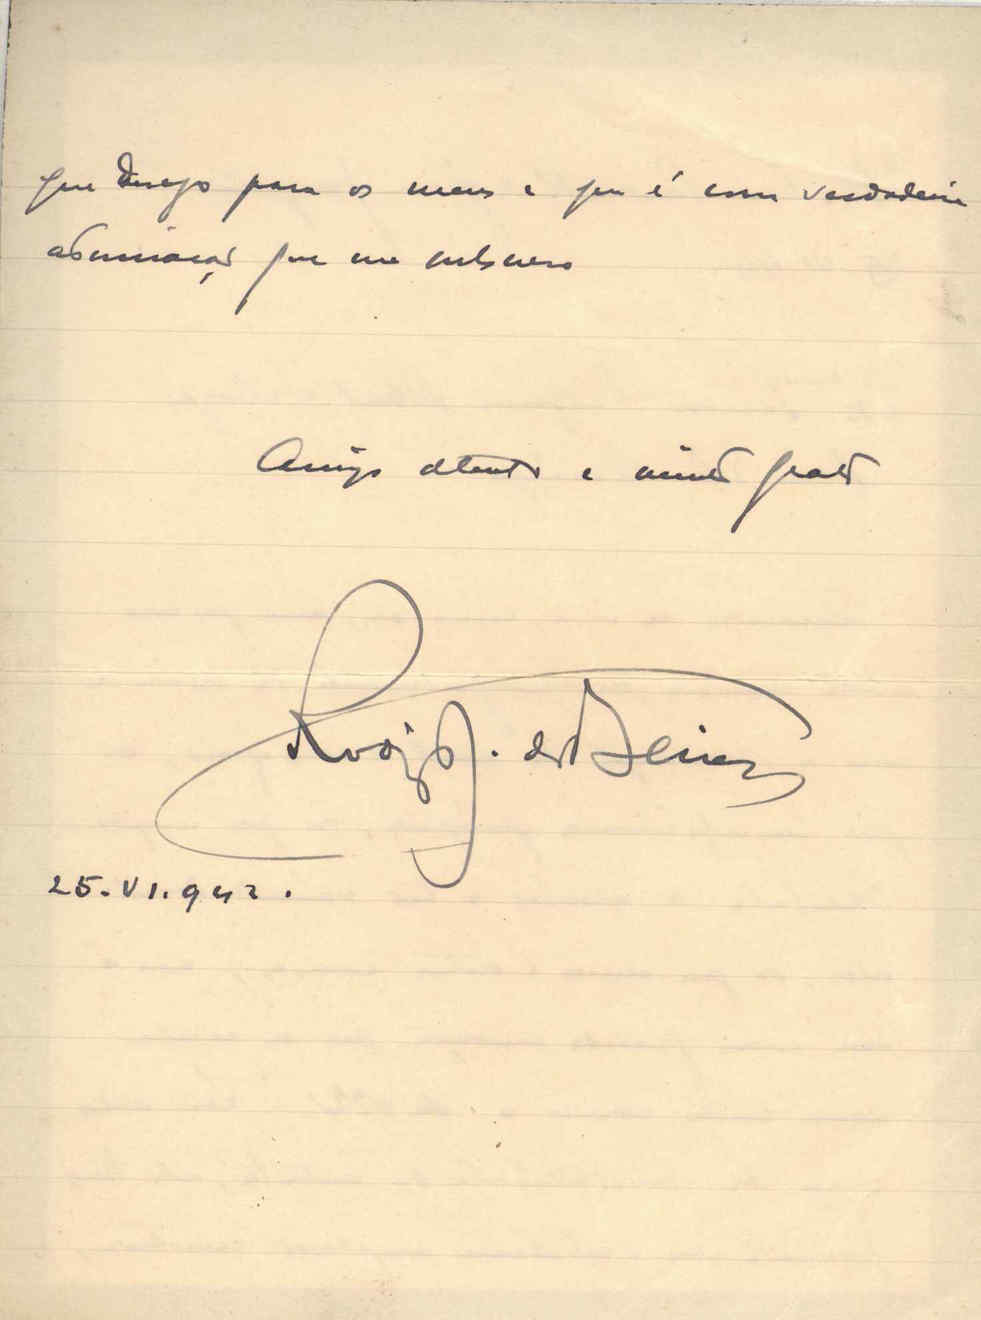 que desejo para os meus e que é com verdadeira
admiração que me subscrevo
Amigo atento e muito grato
25.VI.942.